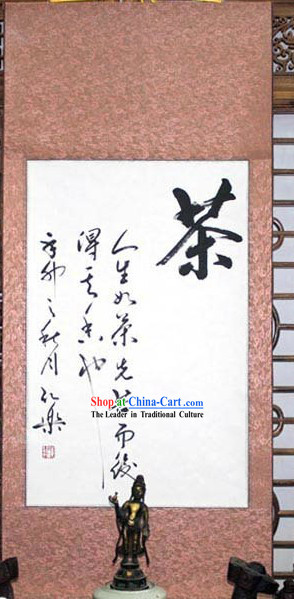 茶
人生如茶先苦而後
得其香也
辛卯之秋月弘樂
Shop at China-Cart.com
The Leader in Traditional Culture